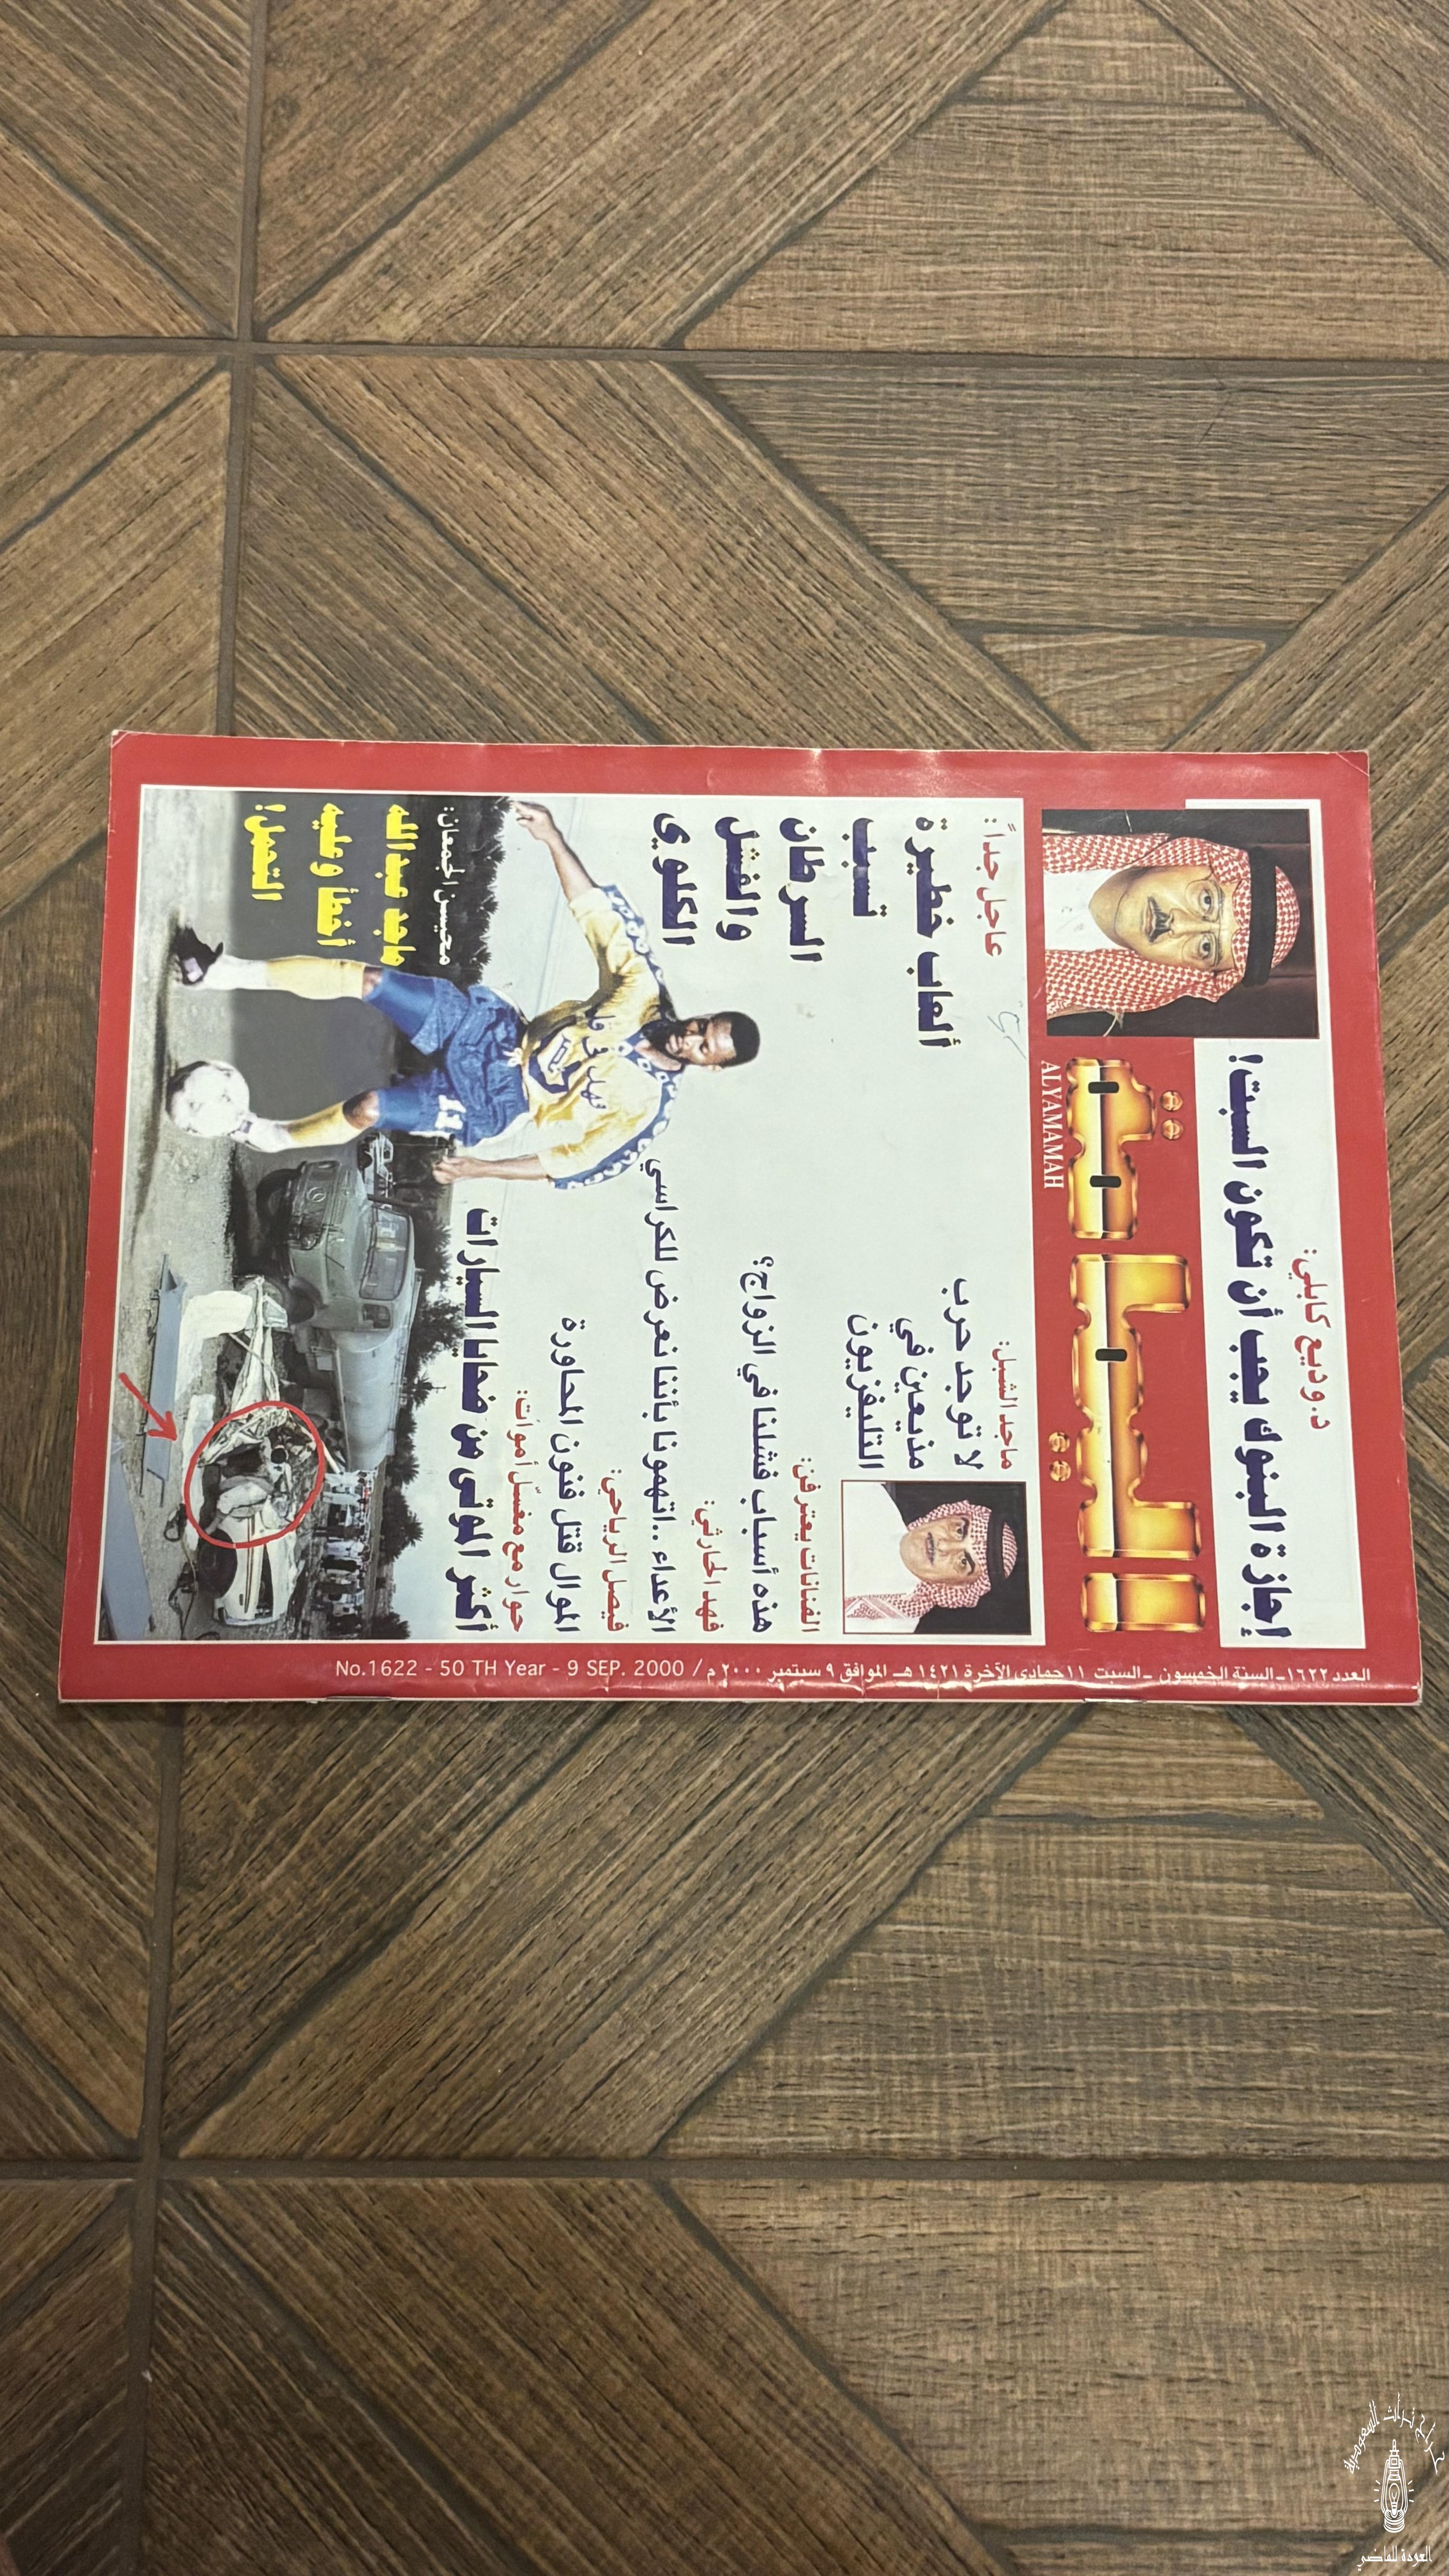 د.وديع كابلي:
إجازة البنوك يجب أن تكون السبت!
اليمامة
ALYAMAMAH
العدد ١٦٢٢ـ السنة الخمسون ـ السبت ١١ جمادى الآخرة ١٤٢١ هـ الموافق ٩ سبتمبر ٢٠٠٠ م / No.1622 - 50 TH Year - 9 SEP. 2000
ماجد الشبل:
لا توجد حرب
مذيعين في
التليفزيون
الفنانات يعترفن:
هذه أسباب فشلنا في الزواج؟
فهد الحارثي:
الأعداء .. اتهمونا بأننا نعرض للكراسي
فيصل الرياحي:
الموال قتل فنون المحاورة
حوار مع مغسّل أموات:
أكثر الموتى من ضحايا السيارات
عاجل جداً:
ألعاب خطيرة
تسبب
السرطان
والفشل
الكلوي
محيسن الجمعان:
ماجد عبدالله
أخطأ وعليه
التحمل!
حراج تراث السعودية
العودة للماضي